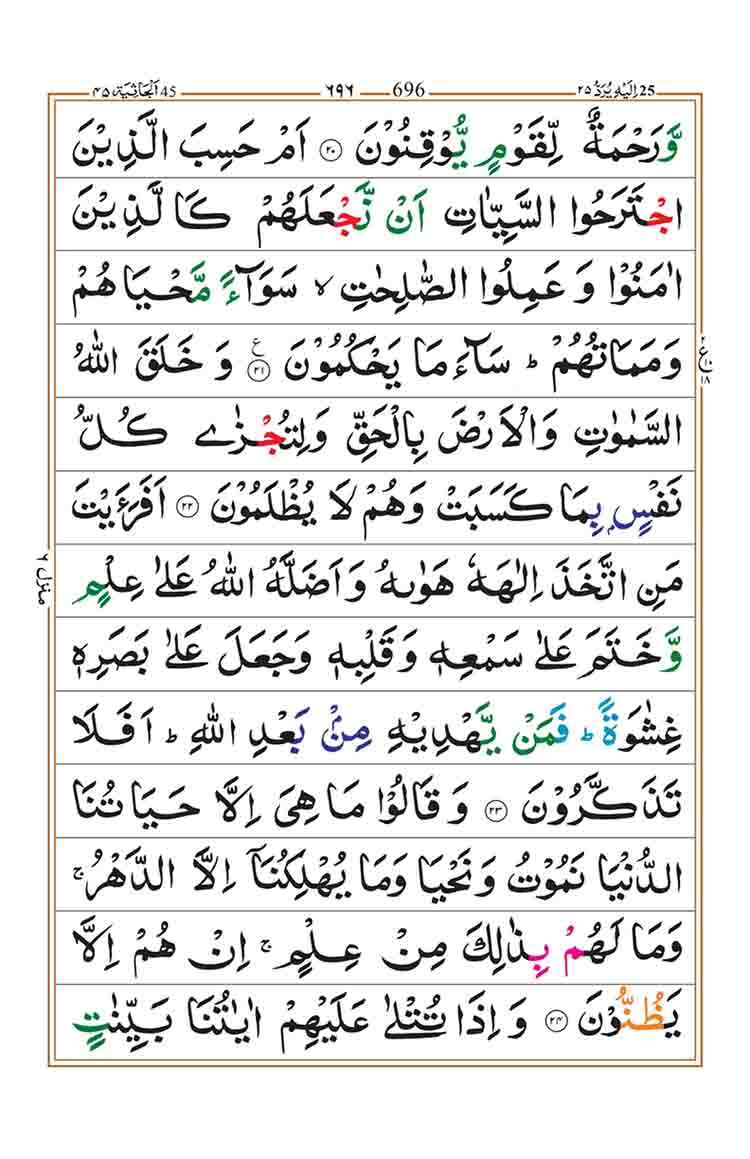 اِلَیْهِ یُرَدُّ ۲۵ 25 696 ۶۹۶ اَلْجَاثِیَة ۴۵ 45
وَّرَحْمَةٌ لِّقَوْمٍ یُّوْقِنُوْنَ ۲۰ اَمْ حَسِبَ الَّذِیْنَ
اجْتَرَحُوا السَّیِّاٰتِ اَنْ نَّجْعَلَهُمْ كَالَّذِیْنَ
اٰمَنُوْا وَ عَمِلُوا الصّٰلِحٰتِ ۙ سَوَآءً مَّحْیَاهُمْ
وَمَمَاتُهُمْ ؕ سَآءَ مَا یَحْكُمُوْنَ ۲۱ ع وَ خَلَقَ اللّٰهُ
ع ۲ ۱۸
السَّمٰوٰتِ وَالْاَرْضَ بِالْحَقِّ وَلِتُجْزٰی كُلُّ
نَفْسٍۭ بِمَا كَسَبَتْ وَهُمْ لَا یُظْلَمُوْنَ ۲۲ اَفَرَءَیْتَ
مَنِ اتَّخَذَ اِلٰهَهٗ هَوٰىهُ وَاَضَلَّهُ اللّٰهُ عَلٰی عِلْمٍ
منزل ۶
وَّخَتَمَ عَلٰی سَمْعِهٖ وَقَلْبِهٖ وَجَعَلَ عَلٰی بَصَرِهٖ
غِشٰوَةً ؕ فَمَنْ یَّهْدِیْهِ مِنْۢ بَعْدِ اللّٰهِ ؕ اَفَلَا
تَذَكَّرُوْنَ ۲۳ وَقَالُوْا مَا هِیَ اِلَّا حَیَاتُنَا
الدُّنْیَا نَمُوْتُ وَنَحْیَا وَمَا یُهْلِكُنَاۤ اِلَّا الدَّهْرُ ۚ
وَمَا لَهُمْ بِذٰلِكَ مِنْ عِلْمٍ ۚ اِنْ هُمْ اِلَّا
یَظُنُّوْنَ ۲۴ وَاِذَا تُتْلٰی عَلَیْهِمْ اٰیٰتُنَا بَیِّنٰتٍ